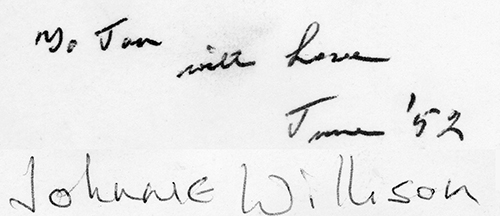 To Jan
with love
June '52
Johnnie Willison